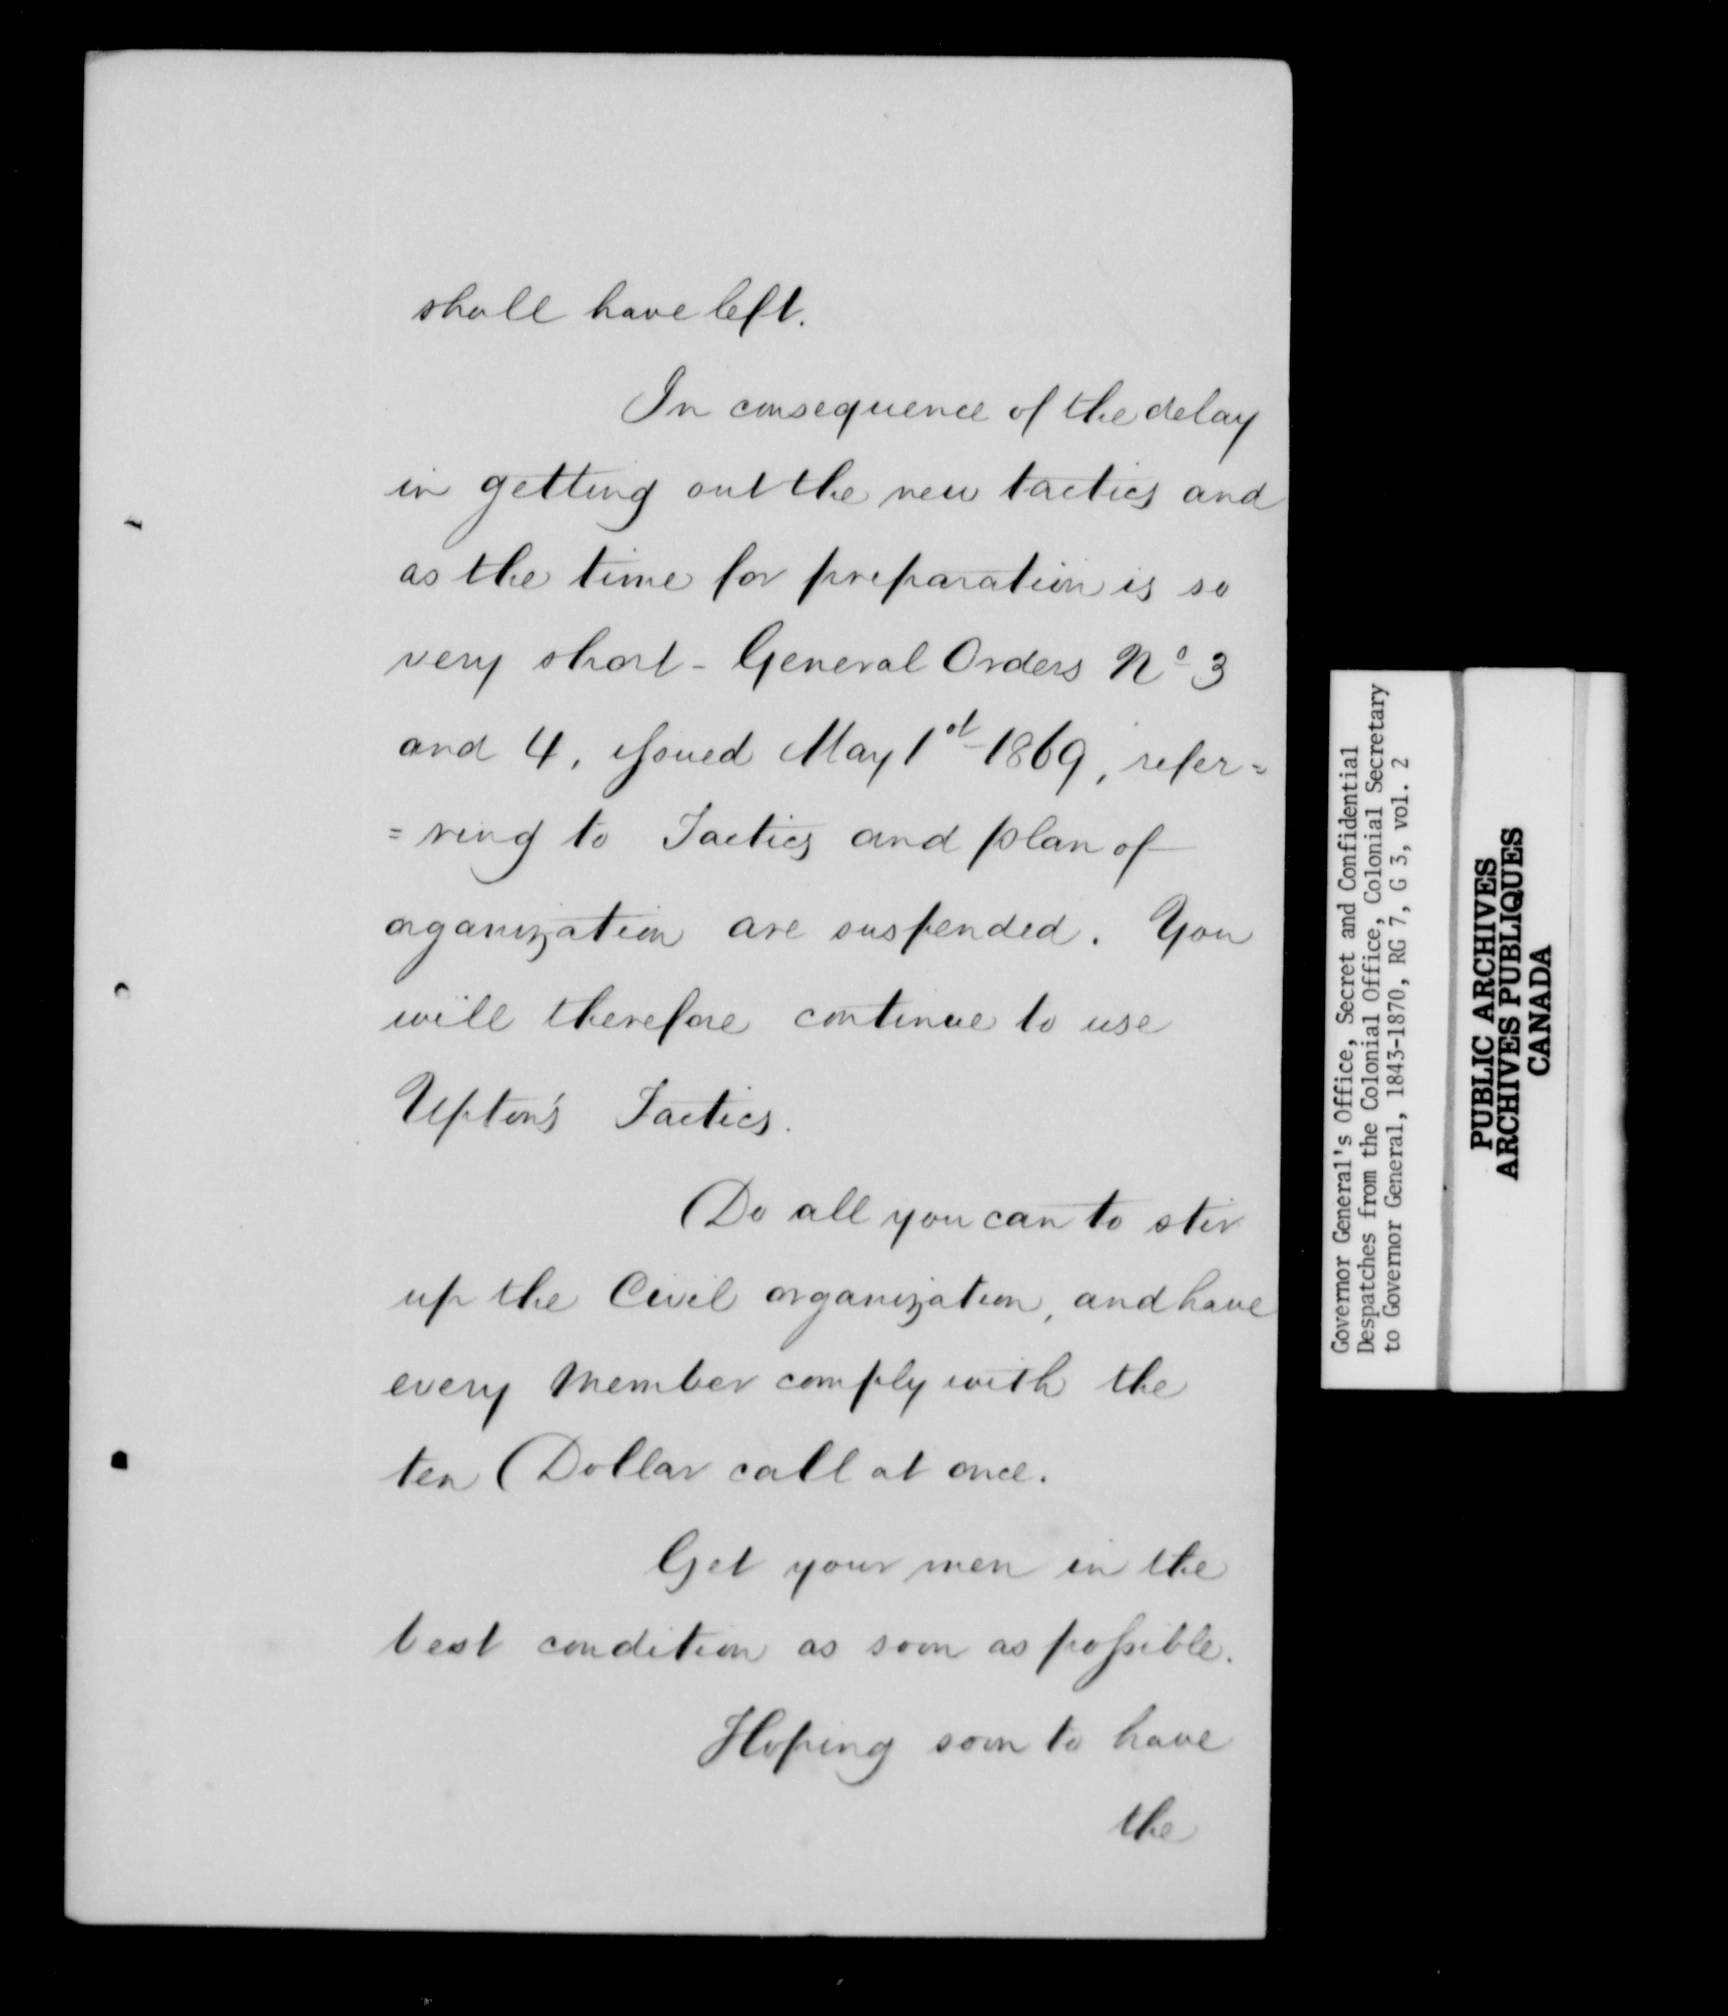 shall have left.
In consequence of the delay
in getting out the new tactics and
as the time for preparation is so
very short - General Orders No 3
and 4, issued May 1st 1869, refer=
=ring to Tactics and plan of
organization are suspended. You
will therefore continue to use
Upton's Tactics.
Do all you can to stir
up the Civil organization, and have
every Member comply with the
ten Dollar call at once.
Get your men in the
best condition as soon as possible.
Hoping soon to have
the
Governor General's Office, Secret and Confidential
Despatches from the Colonial Office, Colonial Secretary
to Governor General, 1843-1870, RG 7, G 3, vol. 2
PUBLIC ARCHIVES
ARCHIVES PUBLIQUES
CANADA